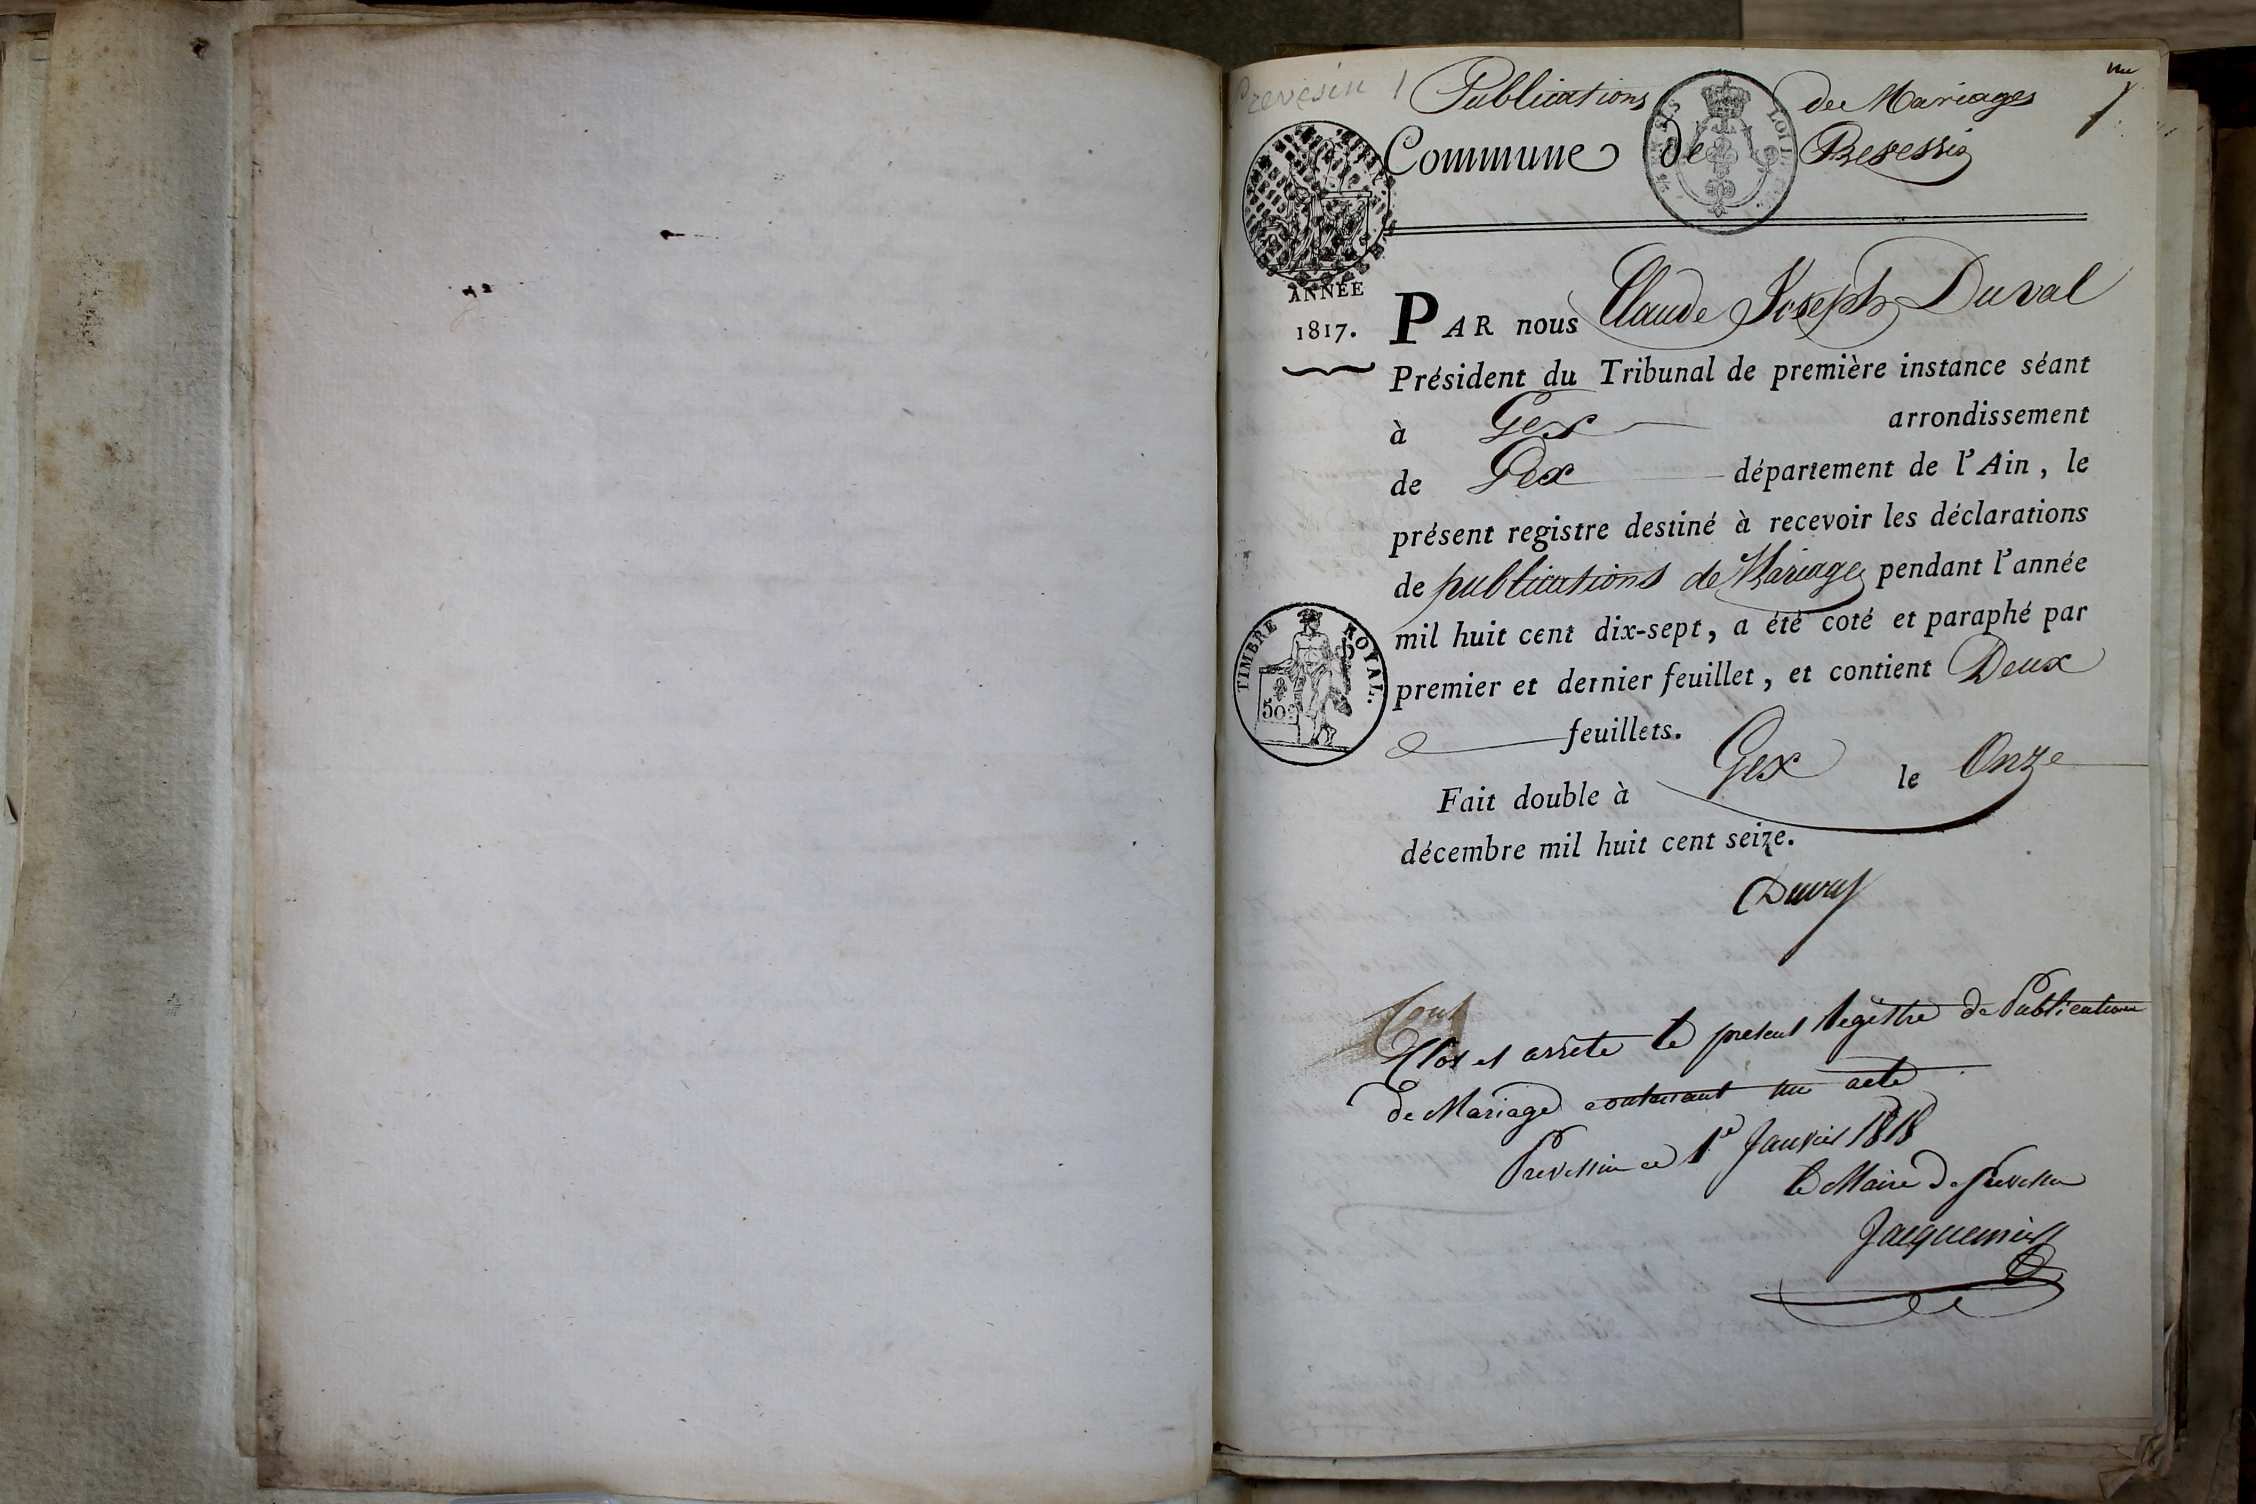 Prevesin 1
Publications de Mariages
Commune de Prevessin
ANNÉE
1817.
PAR nous Claude Joseph Duval
Président du Tribunal de première instance séant
à Gex arrondissement
de Gex département de l'Ain, le
présent registre destiné à recevoir les déclarations
de publications de Mariages pendant l'année
mil huit cent dix-sept, a été coté et paraphé par
premier et dernier feuillet, et contient Deux
feuillets.
TIMBRE ROYAL.
50c
Fait double à Gex le Onze
décembre mil huit cent seize.
Duval
Clos et arrete le present Registre de Publications
de Mariage contenant un acte
Prevessin ce 1e Janvier 1818
le Maire de Prevessin
Jacquemier